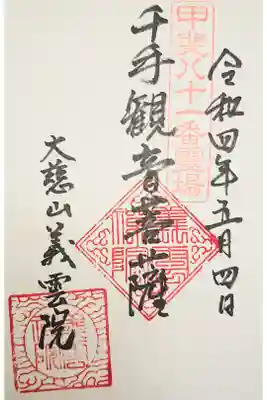 令和四年五月四日
甲斐八十一番霊場
千手観音菩薩
大慈山義雲院